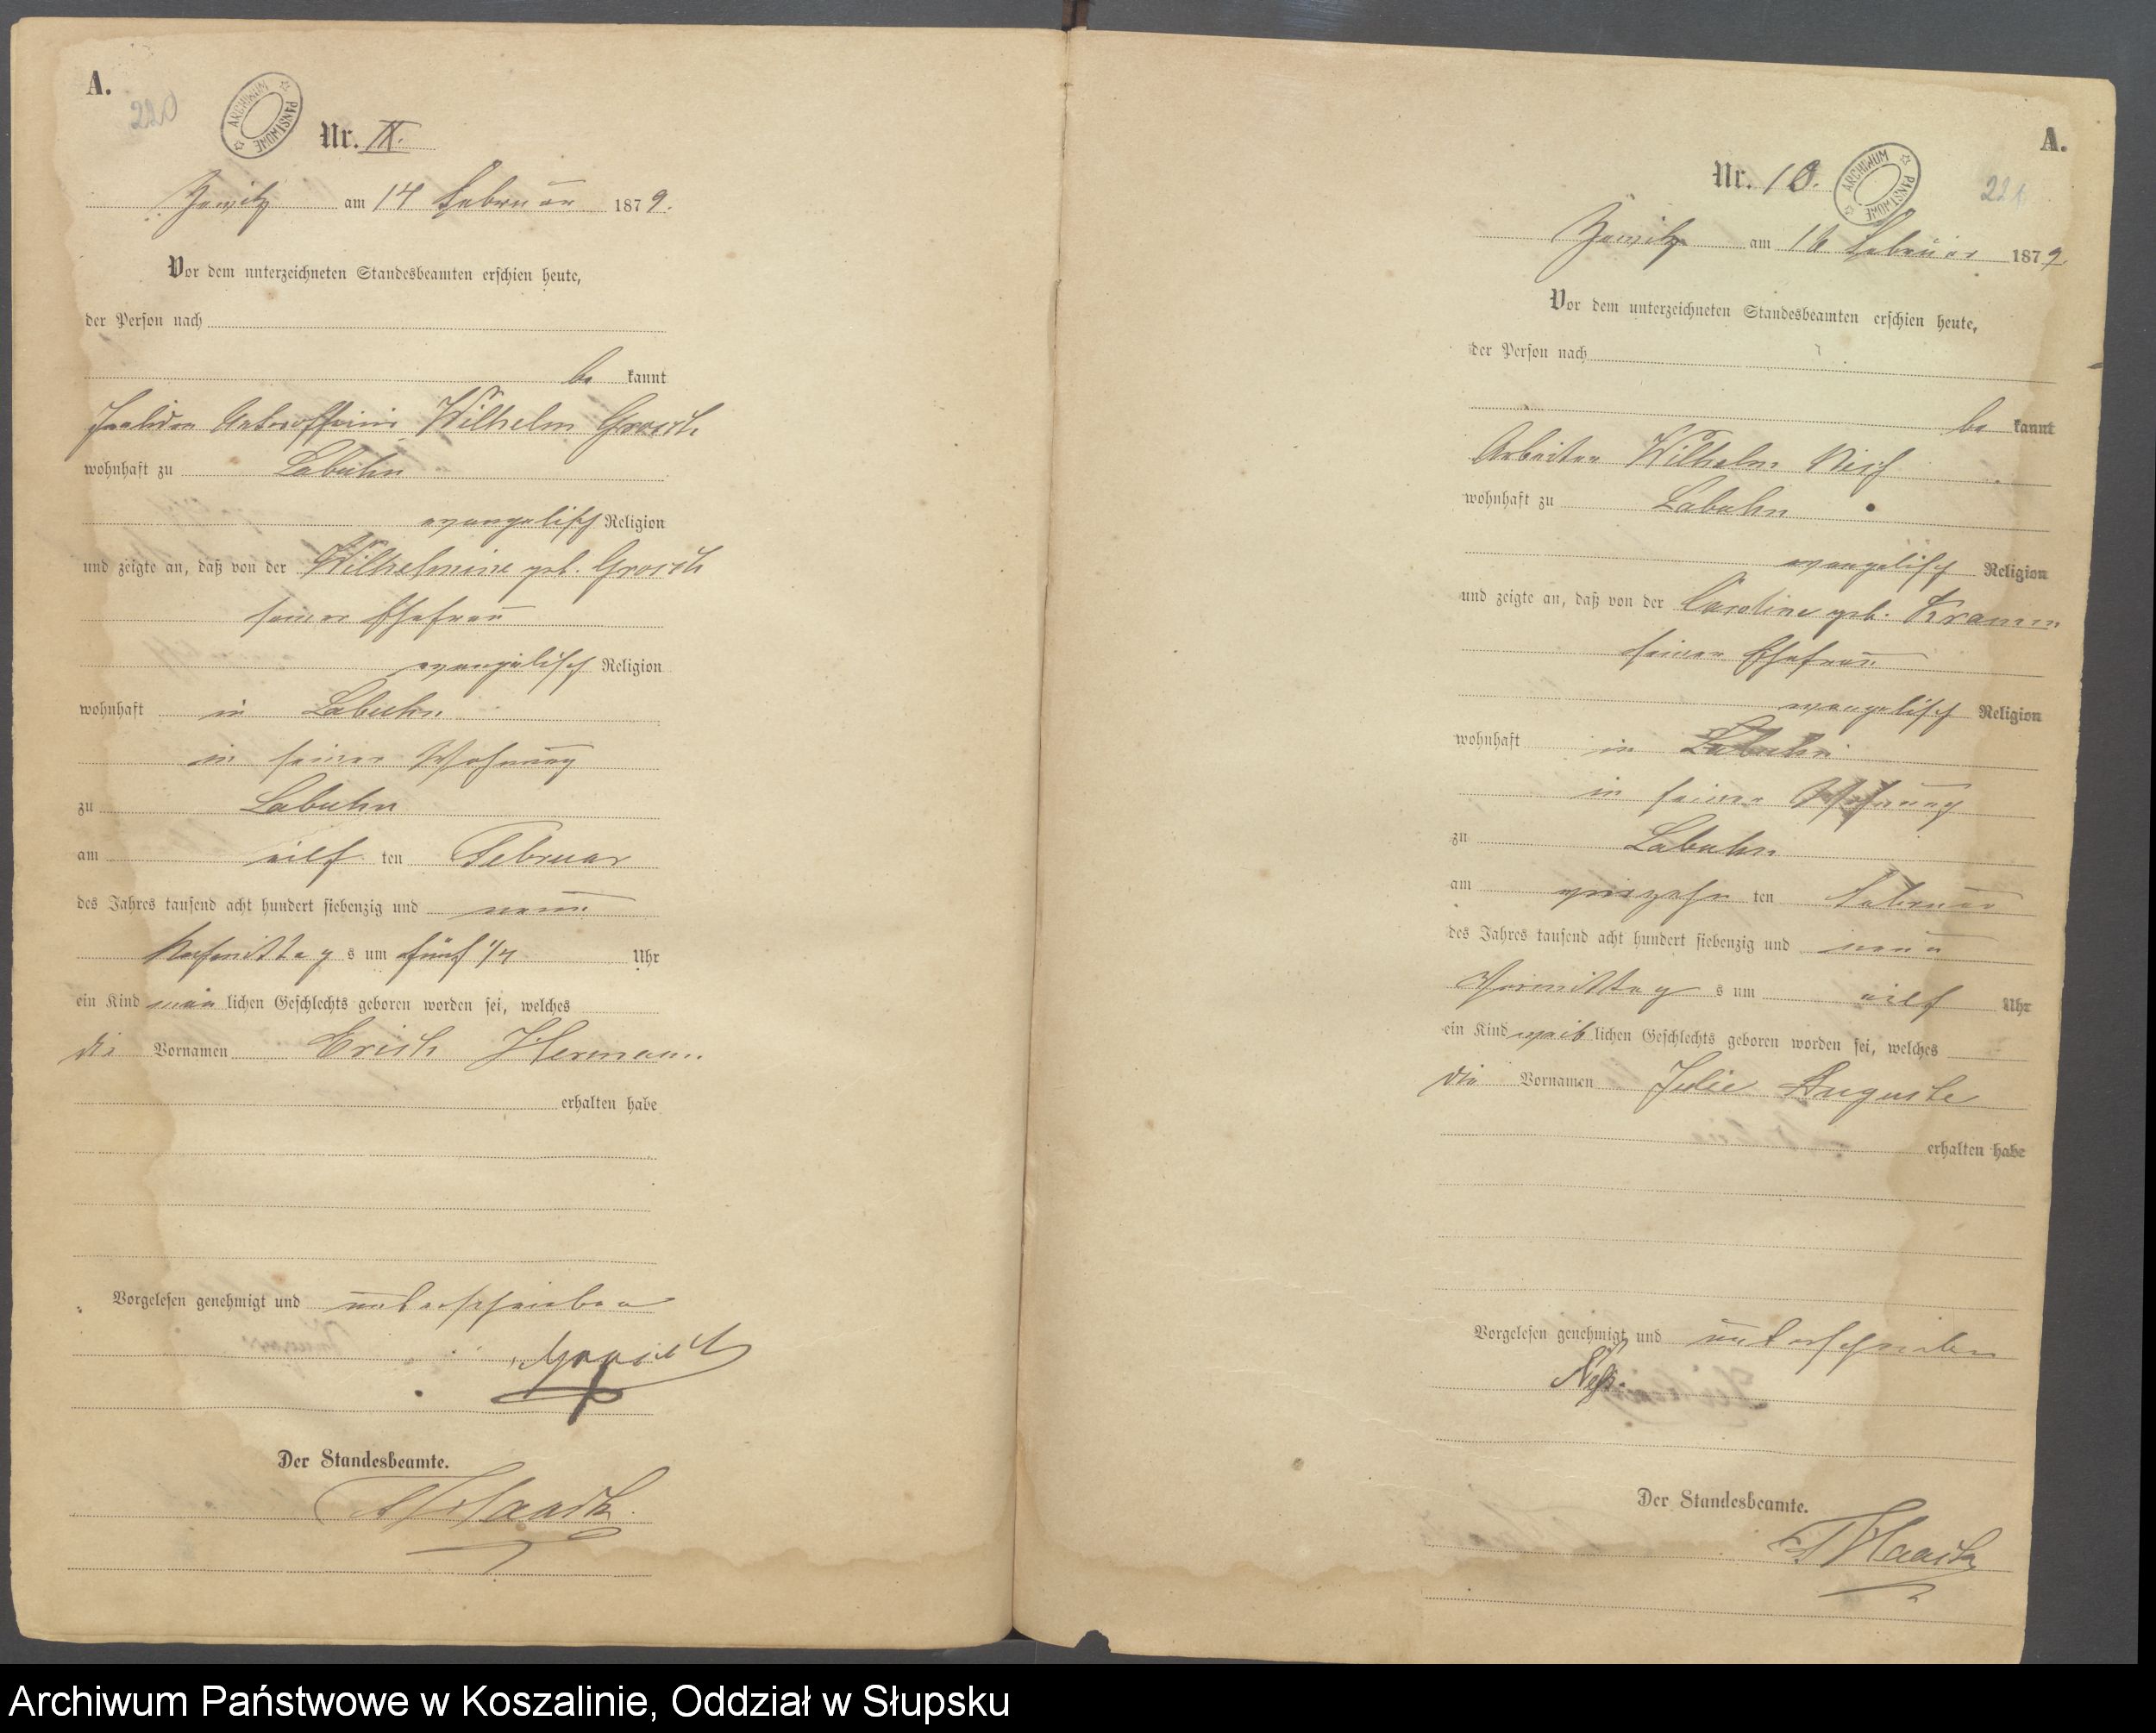 A.
220
ARCHIWUM PAŃSTWOWE
Nr. IX.
Zewitz am 14 Februar 1879.
Vor dem unterzeichneten Standesbeamten erschien heute,
der Person nach
be kannt
Wilhelm Groech
wohnhaft zu Labuhn
evangelisch Religion
und zeigte an, daß von der Wilhelmine geb. Groech
seiner Ehefrau
evangelisch Religion
wohnhaft in Labuhn
in seiner Wohnung
zu Labuhn
am eilf ten Februar
des Jahres tausend acht hundert siebenzig und neun
Nachmittag s um fünf Uhr
ein Kind män lichen Geschlechts geboren worden sei, welches
die Vornamen Erich Hermann
erhalten habe
Vorgelesen genehmigt und unterschrieben
Der Standesbeamte.
A.
221
ARCHIWUM PAŃSTWOWE
Nr. 10.
Zewitz am 16 Februar 1879
Vor dem unterzeichneten Standesbeamten erschien heute,
der Person nach
be kannt
Arbeiter Wilhelm
wohnhaft zu Labuhn
evangelisch Religion
und zeigte an, daß von der Caroline geb. Kramm
seiner Ehefrau
evangelisch Religion
wohnhaft in Labuhn
in seiner Wohnung
zu Labuhn
am ten Februar
des Jahres tausend acht hundert siebenzig und neun
Vormittag s um eilf Uhr
ein Kind weib lichen Geschlechts geboren worden sei, welches
die Vornamen Julie Auguste
erhalten habe
Vorgelesen genehmigt und unterschrieben
Der Standesbeamte.
Archiwum Państwowe w Koszalinie, Oddział w Słupsku